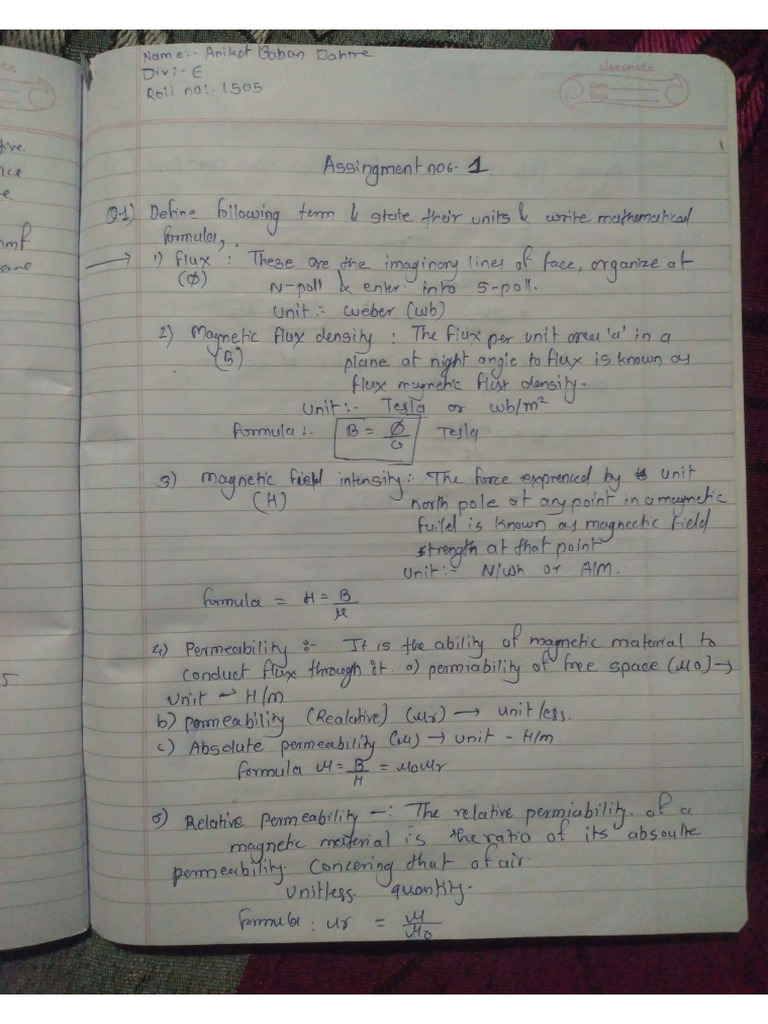 Name:- Aniket Baban Dahme
Div:- E
Roll no:- 1505
classmate
Date
Page
tive
nce
e
mmf
ane
5
1
Assingment nos. 1
Q.1) Define following term & state their units & write mathematical
formula,
→ 1) Flux : These are the imaginary lines of face, organize at
(Ø) N-poll & enter into S-poll.
Unit :- weber (wb)
2) Magnetic flux density : The flux per unit area 'a' in a
(B) plane at night angle to flux is known as
flux magnetic flux density.
Unit:- Tesla or wb/m²
formula :- B = Ø/a Tesla
3) Magnetic field intensity : The force exprenced by unit
(H) north pole at any point in a magnetic
fuild is known as magnectic field
strength at that point
Unit :- N/wb or A/M.
formula = H = B/μ
4) Permeability :- It is the ability of magnetic material to
conduct flux through it. a) permiability of free space (μ0) →
Unit → H/m
b) permeability (Realative) (μr) → unitless.
c) Absolute permeability (μ) → unit - H/m
formula μ = B/H = μ0μr
5) Relative Permeability -: The relative permiability of a
magnetic material is the ratio of its absoulte
permeability. Concering that of air.
Unitless quantity.
formula : μr = μ/μ0